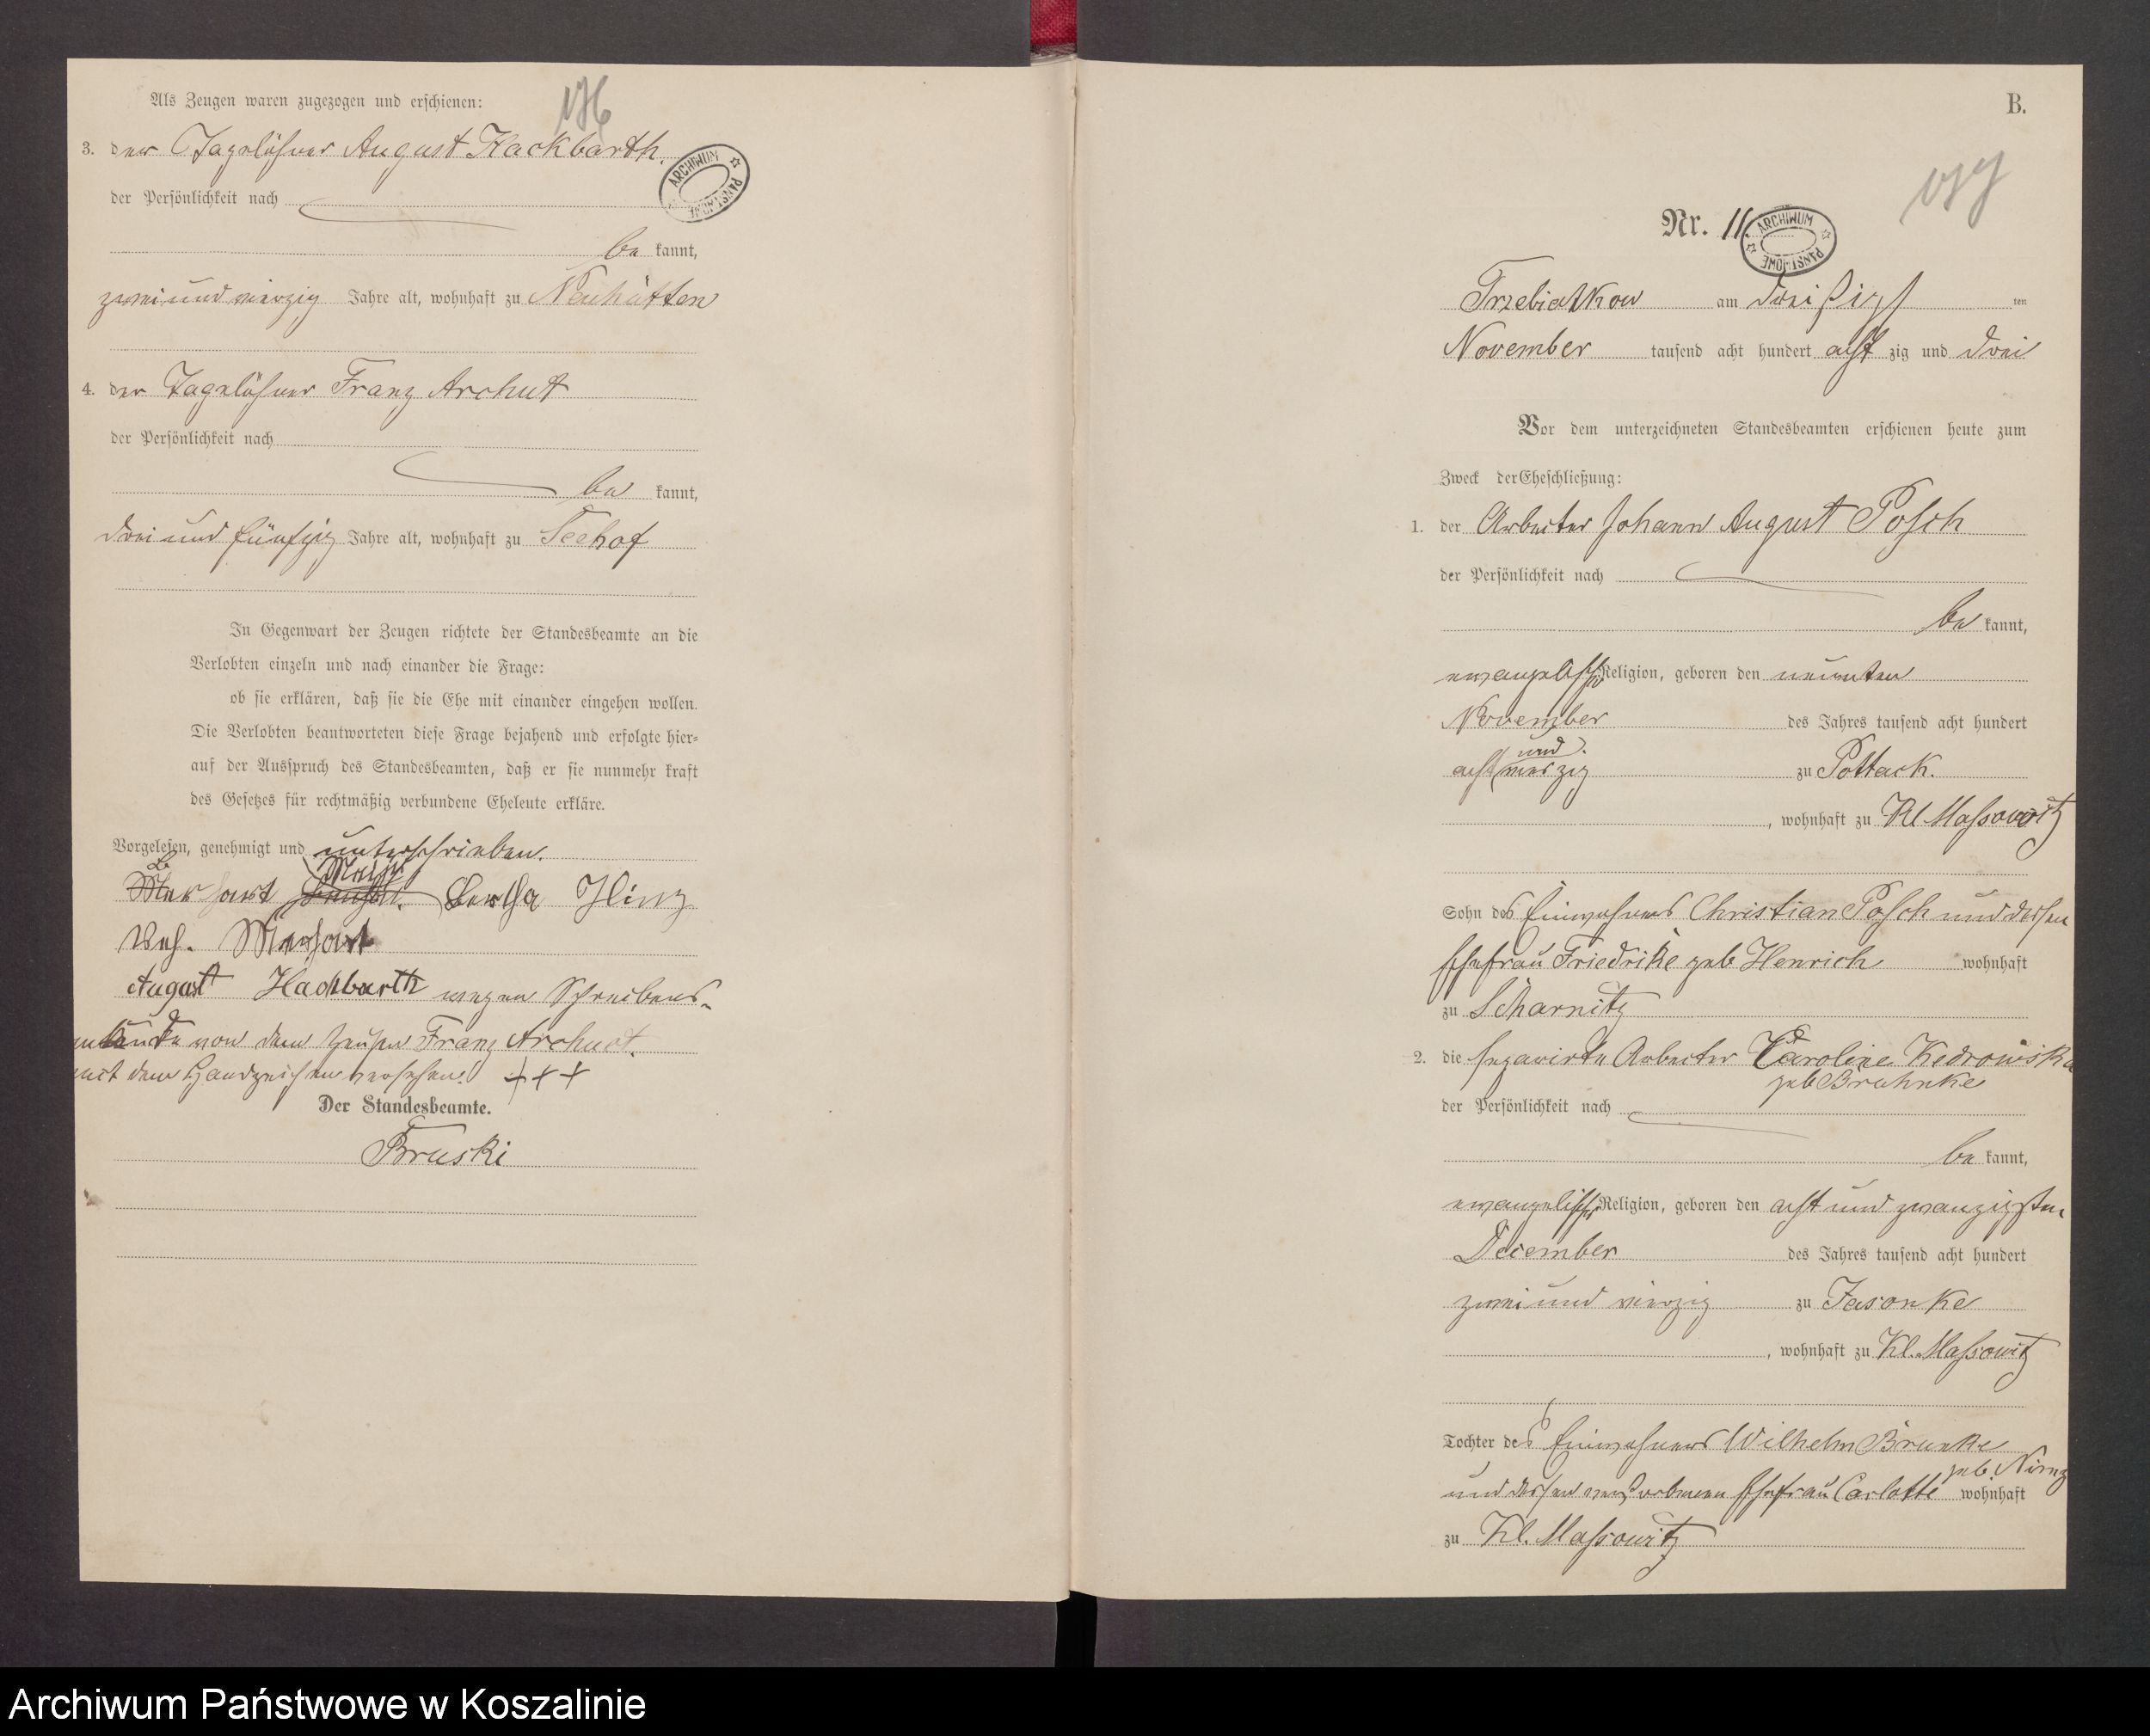 176
Als Zeugen waren zugezogen und erschienen:
3. der Tagelöhner August Hackbarth.
der Persönlichkeit nach
be kannt,
zwei und vierzig Jahre alt, wohnhaft zu Neuhütten
4. der Tagelöhner Franz Archut
der Persönlichkeit nach
be kannt,
drei und fünfzig Jahre alt, wohnhaft zu Seehof
In Gegenwart der Zeugen richtete der Standesbeamte an die
Verlobten einzeln und nach einander die Frage:
ob sie erklären, daß sie die Ehe mit einander eingehen wollen.
Die Verlobten beantworteten diese Frage bejahend und erfolgte hier=
auf der Ausspruch des Standesbeamten, daß er sie nunmehr kraft
des Gesetzes für rechtmäßig verbundene Eheleute erkläre.
Vorgelesen, genehmigt und unterschrieben.
Bertha Hinz
August Hackbarth wegen Schreibens-
unkunde von dem Zeugen Franz Archut.
mit dem Handzeichen versehen. +++
Der Standesbeamte.
Bruski
ARCHIWUM PAŃSTWOWE
B.
177
Nr. 11.
ARCHIWUM PAŃSTWOWE
Trzebiatkow am dreißigsten
November tausend acht hundert acht zig und drei
Vor dem unterzeichneten Standesbeamten erschienen heute zum
Zweck der Eheschließung:
1. der Arbeiter Johann August Posch
der Persönlichkeit nach
be kannt,
evangelischer Religion, geboren den neunten
November des Jahres tausend acht hundert
acht und vierzig zu Pottack.
, wohnhaft zu Kl Massowitz
Sohn des Einwohners Christian Posch und dessen
Ehefrau Friedrike geb Henrich wohnhaft
zu Scharnitz
2. die separirte Arbeiter Caroline Kedrowska
geb Bruhnke
der Persönlichkeit nach
be kannt,
evangelischer Religion, geboren den acht und zwanzigsten
December des Jahres tausend acht hundert
zwei und vierzig zu Jasonke
, wohnhaft zu Kl. Massowitz
Tochter des Einwohners Wilhelm Brunke
und dessen verstorbenen Ehefrau Carlotte geb. Nimz wohnhaft
zu Kl. Massowitz
Archiwum Państwowe w Koszalinie